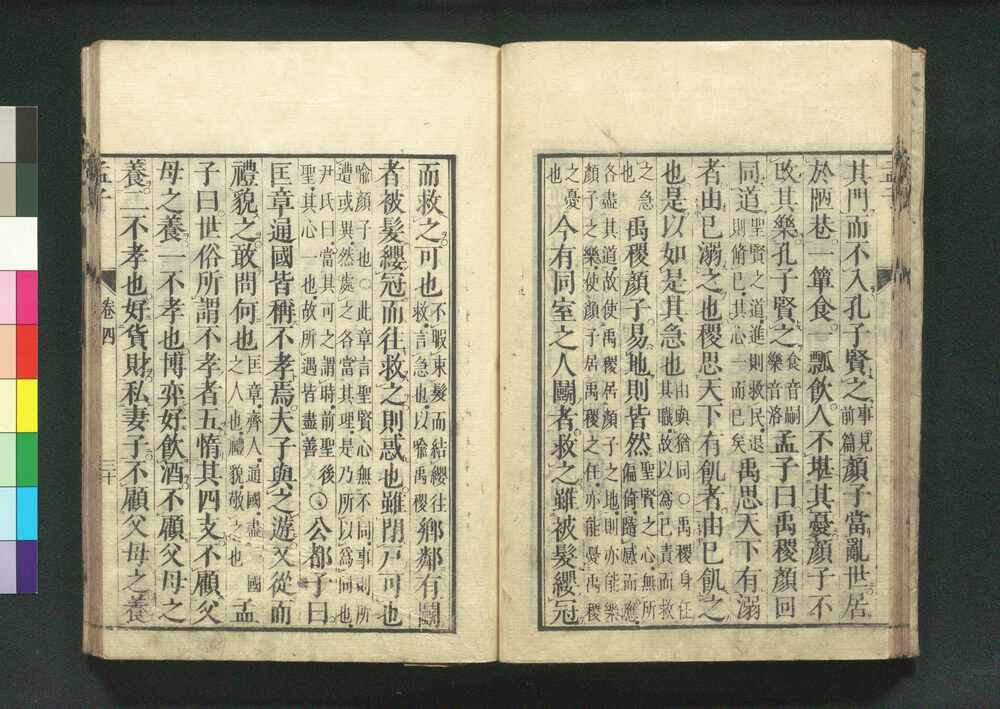 其門而不入孔子賢之事見前篇顏子當亂世居
於陋巷一簞食一瓢飲人不堪其憂顏子不
改其樂孔子賢之食音嗣樂音洛孟子曰禹稷顏回
同道聖賢之道進則救民退則脩己其心一而已矣禹思天下有溺
者由己溺之也稷思天下有飢者由己飢之
也是以如是其急也由與猶同○禹稷身任其職故以為己責而救
之急也禹稷顏子易地則皆然聖賢之心無所偏倚隨感而應
各盡其道故使禹稷居顏子之地則亦能樂
顏子之樂使顏子居禹稷之任亦能憂禹稷
之憂也今有同室之人鬭者救之雖被髮纓冠
而救之可也不暇束髮而結纓往救言急也以喻禹稷鄉鄰有鬭
者被髮纓冠而往救之則惑也雖閉戶可也
喻顏子也○此章言聖賢心無不同事則所
遭或異然處之各當其理是乃所以為同也
尹氏曰當其可之謂時前聖後聖其心一也故所遇皆盡善○公都子曰
匡章通國皆稱不孝焉夫子與之遊又從而
禮貌之敢問何也匡章齊人通國盡一國之人也禮貌敬之也孟
子曰世俗所謂不孝者五惰其四支不顧父
母之養一不孝也博弈好飲酒不顧父母之
養二不孝也好貨財私妻子不顧父母之養
孟子 卷四 三十